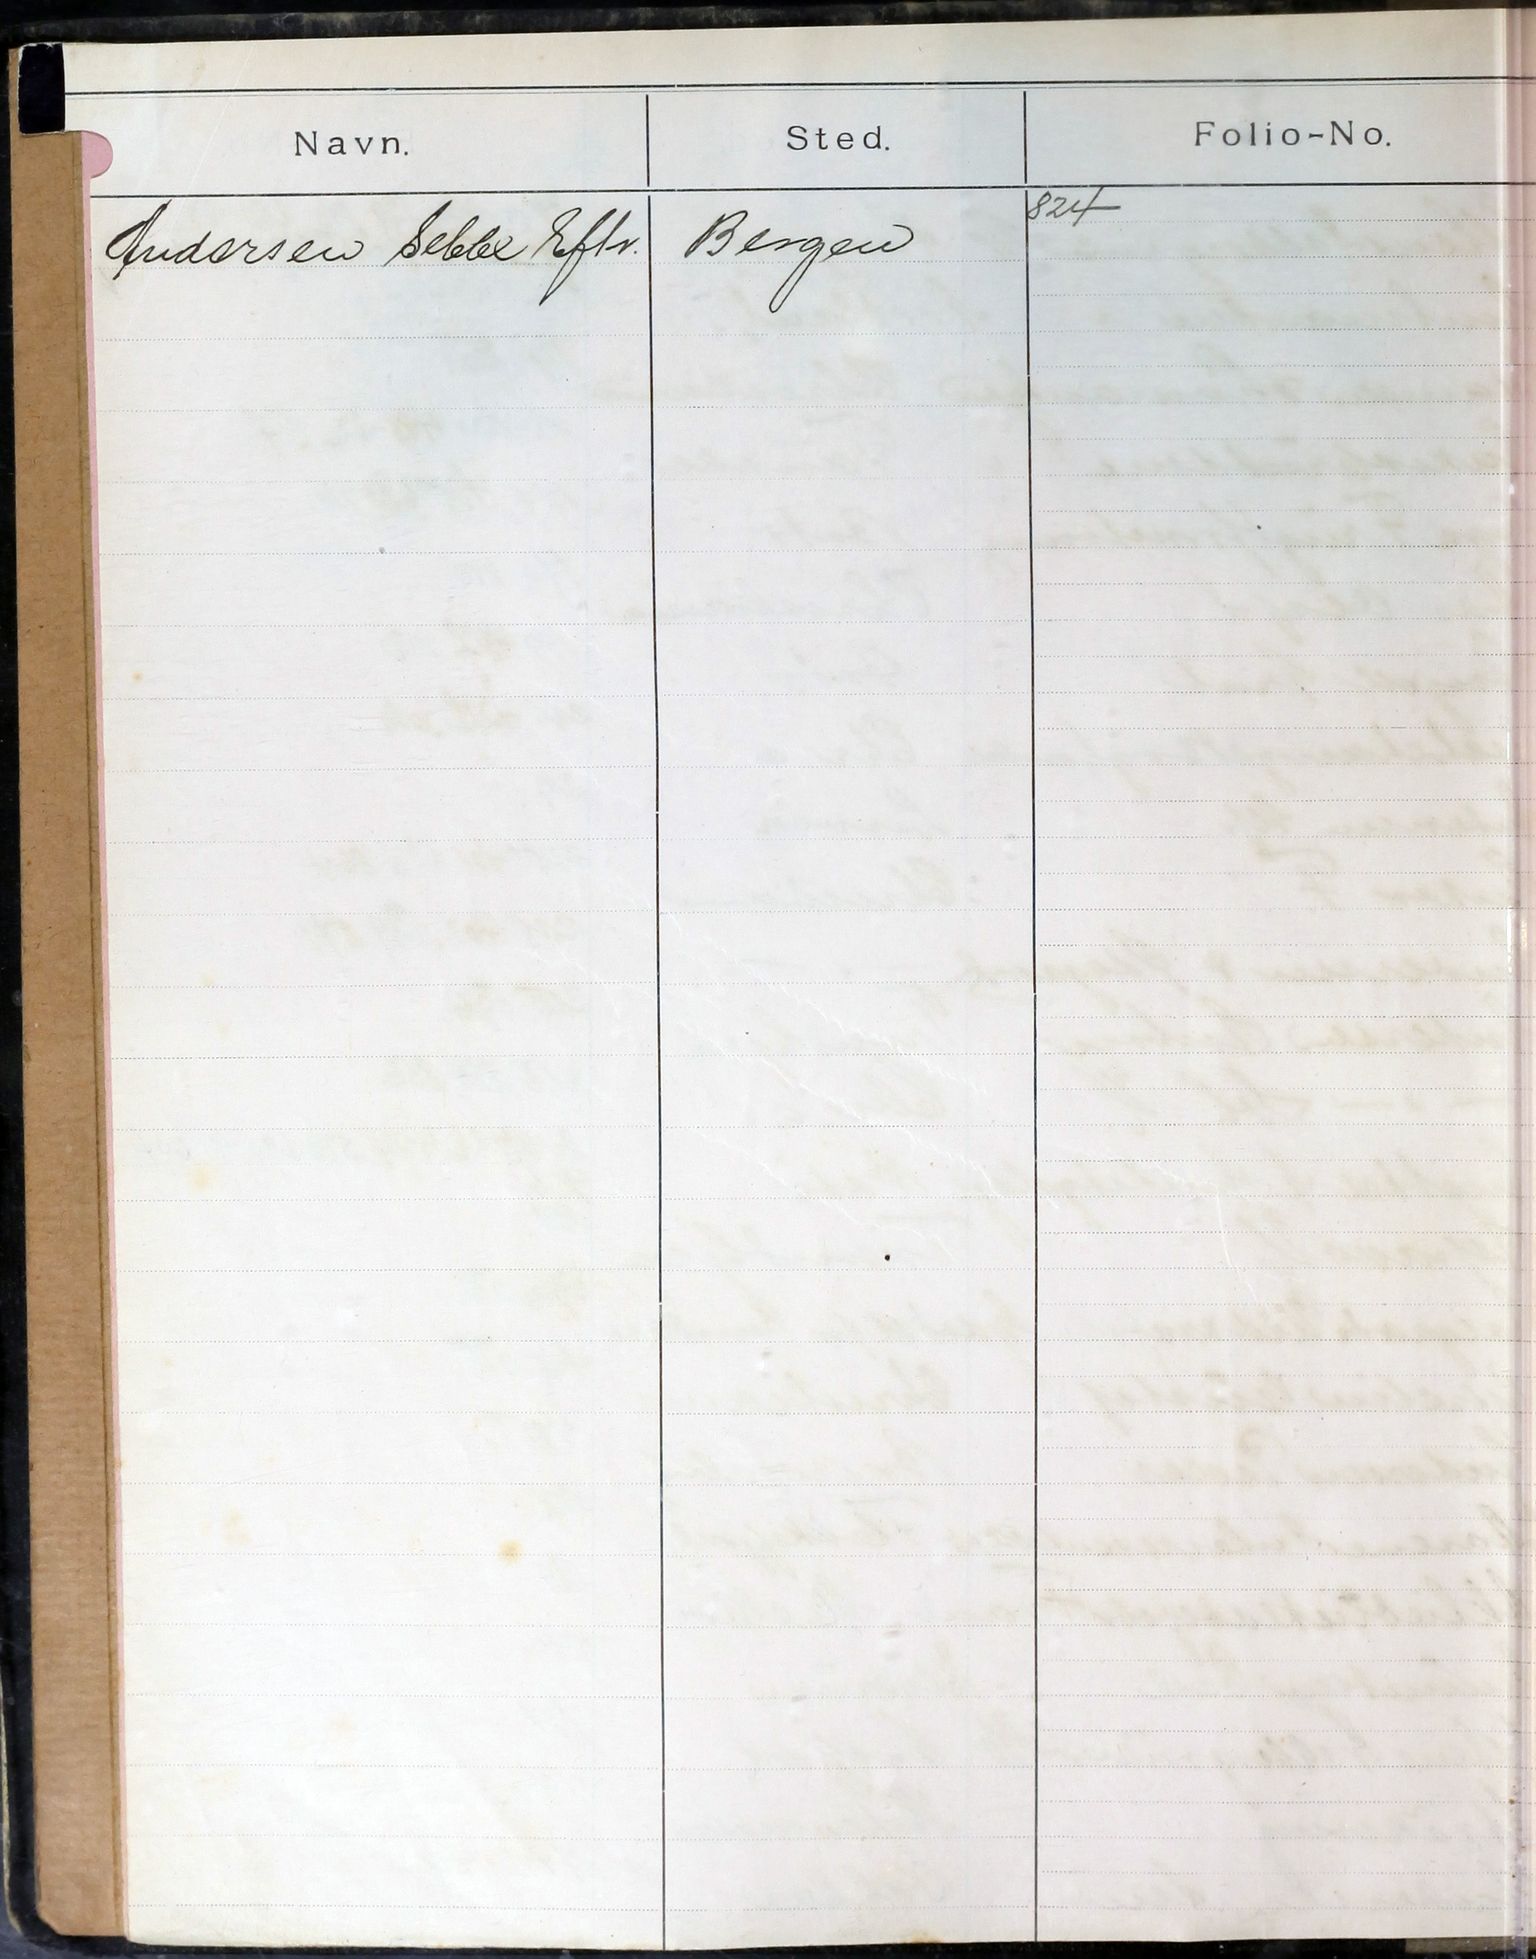 Navn. Sted. Folio-No.
Andersen Sebbe Eftr. Bergen 824